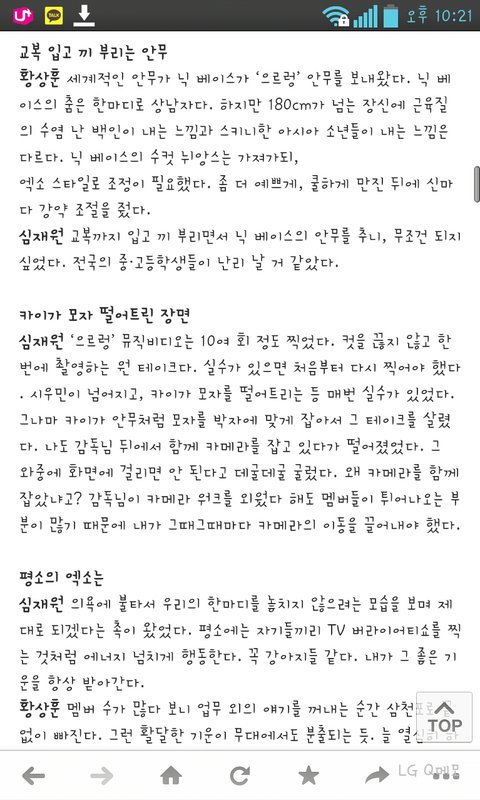 U+
TALK
오후 10:21
교복 입고 끼 부리는 안무
황상훈 세계적인 안무가 닉 베이스가 '으르렁' 안무를 보내왔다. 닉 베
이스의 춤은 한마디로 상남자다. 하지만 180cm가 넘는 장신에 근육질
의 수염 난 백인이 내는 느낌과 스키니한 아시아 소년들이 내는 느낌은
다르다. 닉 베이스의 수컷 뉘앙스는 가져가되,
엑소 스타일로 조정이 필요했다. 좀 더 예쁘게, 쿨하게 만진 뒤에 신마
다 강약 조절을 줬다.
심재원 교복까지 입고 끼 부리면서 닉 베이스의 안무를 추니, 무조건 되지
싶었다. 전국의 중·고등학생들이 난리 날 거 같았다.
카이가 모자 떨어트린 장면
심재원 '으르렁' 뮤직비디오는 10여 회 정도 찍었다. 컷을 끊지 않고 한
번에 촬영하는 원 테이크다. 실수가 있으면 처음부터 다시 찍어야 했다
. 시우민이 넘어지고, 카이가 모자를 떨어트리는 등 매번 실수가 있었다.
그나마 카이가 안무처럼 모자를 박자에 맞게 잡아서 그 테이크를 살렸
다. 나도 감독님 뒤에서 함께 카메라를 잡고 있다가 떨어졌었다. 그
와중에 화면에 걸리면 안 된다고 데굴데굴 굴렀다. 왜 카메라를 함께
잡았냐고? 감독님이 카메라 워크를 외웠다 해도 멤버들이 튀어나오는 부
분이 많기 때문에 내가 그때그때마다 카메라의 이동을 끌어내야 했다.
평소의 엑소는
심재원 의욕에 불타서 우리의 한마디를 놓치지 않으려는 모습을 보며 제
대로 되겠다는 촉이 왔었다. 평소에는 자기들끼리 TV 버라이어티쇼를 찍
는 것처럼 에너지 넘치게 행동한다. 꼭 강아지들 같다. 내가 그 좋은 기
운을 항상 받아간다.
황상훈 멤버 수가 많다 보니 업무 외의 얘기를 꺼내는 순간 삼천포로 끝
없이 빠진다. 그런 활달한 기운이 무대에서도 분출되는 듯. 늘 열심히 하
TOP
LG Q메모